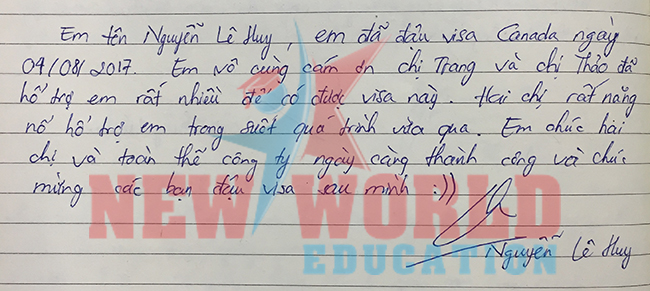 Em tên Nguyễn Lê Huy, em đã đậu visa Canada ngày
04/08/2017. Em vô cùng cám ơn chị Trang và chị Thảo đã
hỗ trợ em rất nhiều để có được visa này. Hai chị rất năng
nổ hỗ trợ em trong suốt quá trình vừa qua. Em chúc hai
chị và toàn thể công ty ngày càng thành công và chúc
mừng các bạn đậu visa sau mình :))
NEW WORLD
EDUCATION
Nguyễn Lê Huy